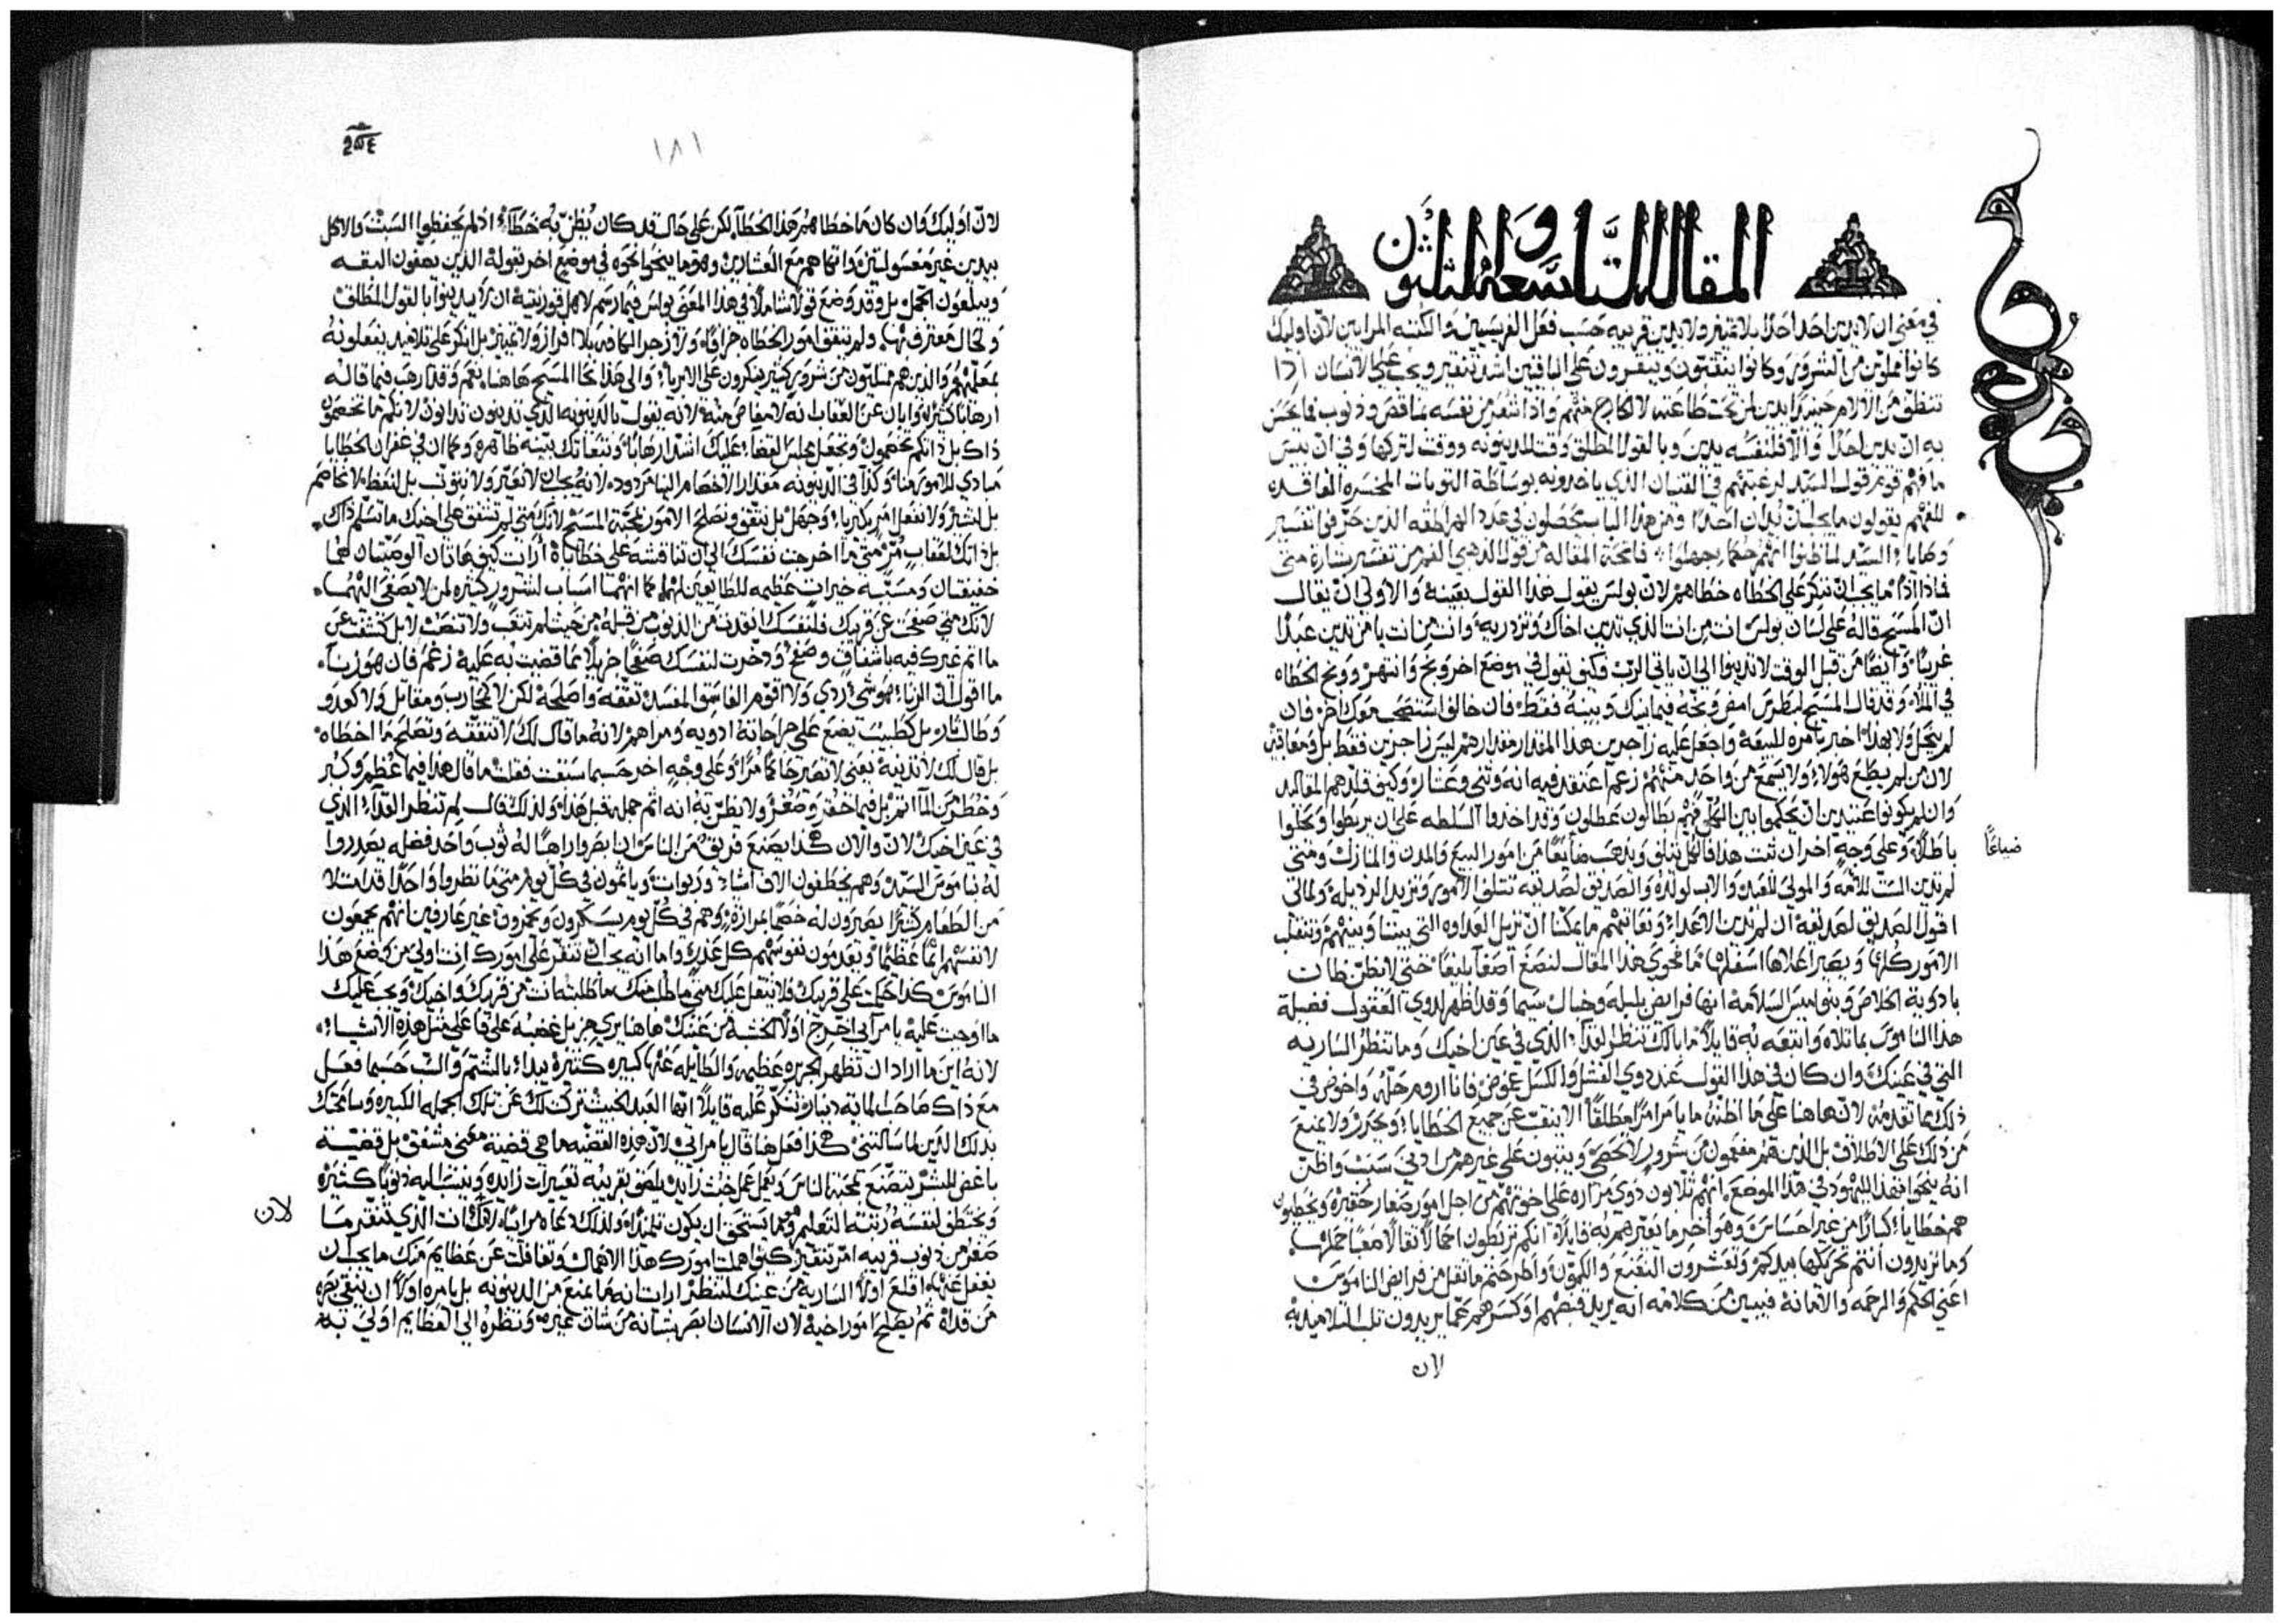 المقالة التاسعة والثلثون
في معنى ان لا يدين احد احدًا بلا تمييز ولا يدين قريبه حسب فعل الفريسيين والكتبه المرايين لان اوليك
كانوا مملوين من الشرور وكانوا ينقبون وينقرون على الباقين اشد تنقير ويجب على الانسان اذا
تنظف من الالام حينيذ يدين من تحت طاعته لا الخارج منهم واذا شعر من نفسه بمناقص وذنوب فما يحسن
به ان يدين احدًا والا فلنفسه يدين وبالقول المطلق وقت للدينونه ووقت لتركها وفي ان بيس
ما فهم قوم قول السيد
للفهم يقولون ما يجب ان يدان احدًا ومن هذا الباب يتحصلون في عدد الهراطقه الذين حرفوا تفسير
وصايا السيد لما ظنوا انهم حكما جهلوا فاتحة المقاله من قول الذهبي الفم من تفسير بشارة متى
لماذا اذًا ما يجب ان ننكر على الخطاه خطاهم لان بولس يقول هذا القول بعينه والاولى ان يقال
ان المسيح قاله على لسان بولس انت من انت الذي تدين اخاك وتزدريه وانت من انت يا من تدين عبدًا
غريبًا وايضًا من قبل الوقت لا تدينوا الى ان ياتي الرب فكيف يقول في موضع اخر وبخ وانتهر ووبخ الخطاه
في الملاء وقد قال المسيح لبطرس امض وبخه فيما بينك وبينه فقط فان خالف استصحب معك اخر فان
لم يخجل ولا بهذا اخبر بامره للبيعة واجعل عليه زاجرين هذا المقدار مقدارهم ليس زاجرين فقط بل ومعاقبين
لان من لم يطع هولاء ولا يسمع من واحد منهم زعم اعتقد فيه انه وثني وعشار وكيف قلدهم المقاليد
وان لم يكونوا عتيدين ان يحكموا بين الكل فهم بطالون عطلون وقد اخذوا السلطه على ان يربطوا ويحلوا
باطلًا وعلى وجه اخر ان ثبت هذا فالكل يتلف ويذهب ضايعًا من امور البيع والمدن والمنازل ومتى
ضياعًا
لم تدين الست للامه والمولى للعبد والاب لولده والصديق لصديقه تتلف الامور وتزيد الرذيله ولماني
اقول الصديق لصديقه ان لم ندين الاعداء ونعاتبهم ما يمكننا ان نزيل العداوه التي بيننا وبينهم وتنقلب
الامور كلها ويصير اعلاها اسفلها فما فحوى هذا المقال لنصغ اصغاً بليغًا حتى لا يظن ظان
بادوية الخلاص ونواميس السلامه انها فرايض بلبله وخبال سيما وقد اظهر لذوي العقول فضيلة
هذا الناموس بما تلاه واتبعه به قايلًا ما بالك تنظر القذاء الذي في عين اخيك وما تنظر الساريه
التي في عينك وان كان في هذا القول عند ذوي الفشل والكسل غموض فانا اروم حله واخوض في
ذلك بما تقدمه لان هاهنا على ما اظنه ما يامر امرًا مطلقًا الا نبكت عن جميع الخطايا ويحذر ولا يمنع
من ذلك على الاطلاق بل الذين هم مفعمون من شرور لا تحصى ويثبون على غيرهم من ادنى سبب واظن
انه ينحوا بهذا لليهود في هذا الموضع انهم ثلابون ذوي مراره على اخوتهم من اجل امور صغار حقيره ويخطيون
هم خطاياء كبارًا من غير احساس وهو اخر ما يعيرهم به قايلًا انكم تربطون احمالًا ثقالًا صعبًا حملها
وما تريدون انتم تحريكها بيدكم وتعشرون النعنع والكمون واطرحتم ما ثقل من فرايض الناموس
اعني الحكم والرحمه والامانه فيبين من كلامه انه يريد قبضهم او كسرهم عما يريدون ثلب التلاميذ به
لان
١٨١
لان اوليك وان كان ما خطاهم هذا الخطا لكن على حال قد كان يظن به خطاء اذ لم يحفظوا السبت والاكل
بيدين غير مغسولتين واتكاهم مع العشارين وهو ما ينحوا نحوه في موضع اخر بقوله الذين يصفون البقه
ويبلعون الجمل بل وقد وضع قولًا شاملًا في هذا المعنى بولس فيما رسم لاهل قورنثيه ان لا يدينوا بالقول المطلق
معلمهم والذين هم مملوون من شرور كثير ينكرون على الابرياء والى هذا نحا المسيح هاهنا نعم وقد ارهب فيما قاله
ارهابًا كثيرًا وابان عن العقاب انه لا مناص منه لانه يقول بالدينونه الذي تدينون تدانون لانكم ما تخصمون
ذاك بل ذاتكم تخصمون وتجعل مجلس القضاء عليك اشد ارهابًا
مبادي الامور منا وكذا في الدينونه مقدار الاخصام الينا مردود لانه يجب الا نعير ولا نثوب بل لنعظ لا نخاصم
بل لنشير ولا نفعل امر بكبرياء وجهل بل نتقن ونصلح الامور بمحبة المسيح لانك متى لم تشفق على اخيك ما تسلم ذاك
بل ذاتك لعقاب مر متى ما احرجت نفسك الى ان تناقشه على خطاياه ارايت كيف هاتان الوصيتان هما
خفيفتان ومسببه خيرات عظيمه للطايعين لهما كما انهما اسباب لشرور كثيره لمن لا يصغى اليهما
لانك متى صفحت عن قريبك فلنفسك انقذت من الذنوب من قبله من حيث لم تتعب ولا تنصب لا بل كشفت عن
ما اثم غيرك فيه باشفاق وصفح وذخرت لنفسك صفحًا جزيلًا بما قضيت به عليه زعم فان هو زنا
ما اقول ان الزناء هو شيء ردي ولا اقوم الفاسق المفسد نعفه واصلحه لكن لا كمحارب ومقاتل ولا كعدو
وطالب ثار بل كطبيب يضع على جراحاته ادويه ومراهم لانه ما قال لك لا تثقفه وتصلح ما اخطاه
بل قال لك لا تدينه يعني لا تصير حاكمًا مرًا وعلى وجه اخر حسبما سبقت فقلت ما قال هذا فيما عظم وكبر
وخطر من المآثم بل فيما احقر وصغر ولا يظن به انه اثم جمله قبل هذا ولذلك قال لم تنظر القذاء الذي
في عين اخيك لان والان هكذا يصنع فريق من الناس ان ابصروا راهبًا له ثوب واحد فضله يصدروا
له ناموس السيد وهم يخطفون الاف اشياء وربوات وياثمون في كل يوم متى ما نظروا واحدًا قد امتلا
من الطعام كثيرًا يصيرون له خصمًا بمراره وهم في كل يوم يسكرون ويخمرون غير عارفين انهم يجمعون
لانفسهم اثمًا عظيمًا ويعدمون نفوسهم كل عذر واما انه يجب ان تنقر على امورك انت اولى من وضع هذا
الناموس كذا حكمت على قريبك فلا تثقل عليك متى ما طلب منك ما طلبته انت من قريبك واخيك ويجب عليك
ما اوجبت عليه يا مرآي اخرج اولًا الخشبه من عينك هاهنا يري جزيل غضبه على فاعلي مثل هذه الاشياء
لانه اين ما اراد ان يظهر الجريره عظيمه والطايله عنها كبيره كثيره يبداء بالشتم والسب حسبما فعل
مع ذاك صاحب الماية دينار تنكر عليه قايلًا ايها العبد الخبيث تركت لك عن تلك الجمله الكبيره وسامحتك
بذلك الدين لما سالتني هكذا فعل هاهنا قال يا مرآي لان هذه القضيه ما هي قضية معتني مشفق بل قضية
باغض للبشر يتصنع بمحبة الناس ويعمل عمل خبث زايد يلصق بقريبه تعييرات زايده وينسب اليه ذنوبًا كثيره
ويختطف لنفسه رتبة التعليم وما يستحق ان يكون تلميذًا ولذلك دعاه مرايًا
لان
صغر من ذنوب قريبه امر تنقير كيف اهملت امورك هذا الاهمال وتغافلت عن عظايم منك ما يجب ان
يغفل عنها اقلع اولًا الساريه من عينك لتنظر ارايت انه ما يمنع من الدينونه بل يامر اولًا ان ينقي بصره
من قذاه ثم يصلح امور اخيه لان الانسان ابصر بشانه من شان غيره ونظره الى العظايم اولى به